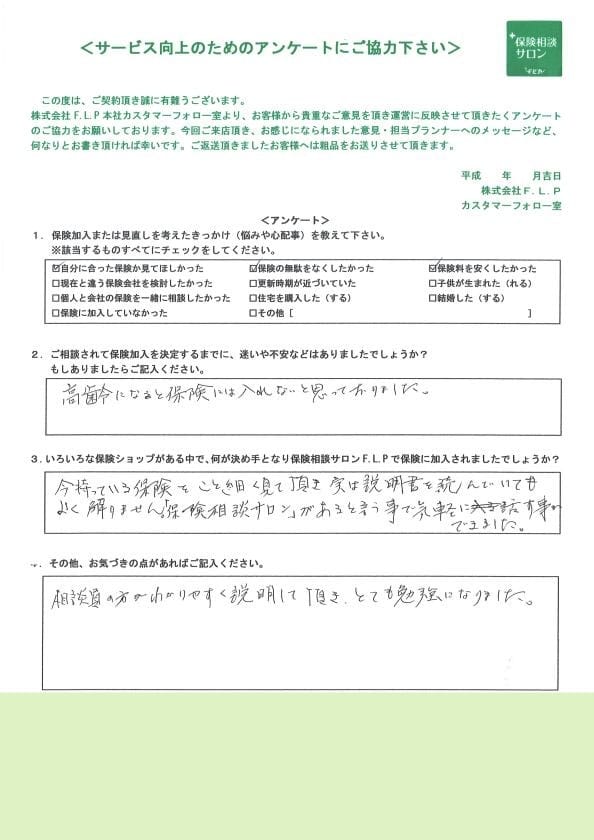 ＜サービス向上のためのアンケートにご協力下さい＞
保険相談
サロン
この度は、ご契約頂き誠に有難うございます。
株式会社Ｆ.Ｌ.Ｐ本社カスタマーフォロー室より、お客様から貴重なご意見を頂き運営に反映させて頂きたくアンケート
のご協力をお願いしております。今回ご来店頂き、お感じになられました意見・担当プランナーへのメッセージなど、
何なりとお書き頂ければ幸いです。ご返送頂きましたお客様へは粗品をお送りさせて頂きます。
平成　　年　　月吉日
株式会社Ｆ.Ｌ.Ｐ
カスタマーフォロー室
＜アンケート＞
１．保険加入または見直しを考えたきっかけ（悩みや心配事）を教えて下さい。
※該当するものすべてにチェックをしてください。
☑自分に合った保険か見てほしかった　☑保険の無駄をなくしたかった　☑保険料を安くしたかった
□現在と違う保険会社を検討したかった　□更新時期が近づいていた　□子供が生まれた（れる）
□個人と会社の保険を一緒に相談したかった　□住宅を購入した（する）　□結婚した（する）
□保険に加入していなかった　□その他［　　　　　　］
２．ご相談されて保険加入を決定するまでに、迷いや不安などはありましたでしょうか？
もしありましたらご記入ください。
高齢になると保険には入れないと思っておりました。
３．いろいろな保険ショップがある中で、何が決め手となり保険相談サロンＦ.Ｌ.Ｐで保険に加入されましたでしょうか？
今持っている保険をこと細く見て頂き実は説明書を読んでいても
よく解りません「保険相談サロン」があると言う事で気軽に話す事が
できました。
．その他、お気づきの点があればご記入ください。
相談員の方がわかりやすく説明して頂き、とても勉強になりました。